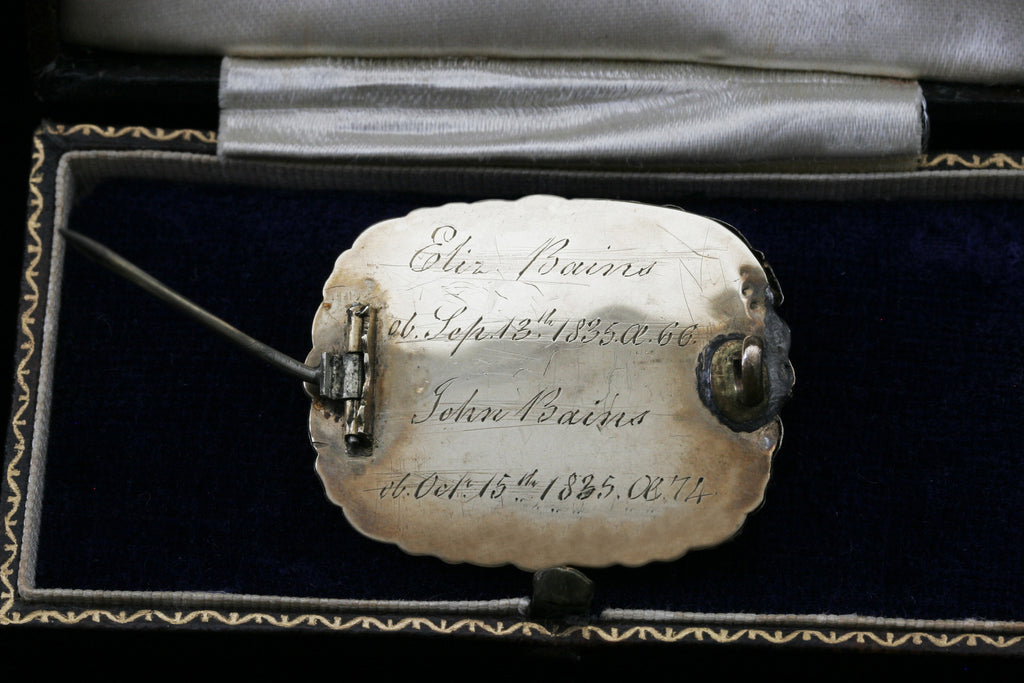 Eliz Bains
ob. Sep. 13th 1835. Æ. 66.
John Bains
ob. Oct. 15th 1835. Æ. 74